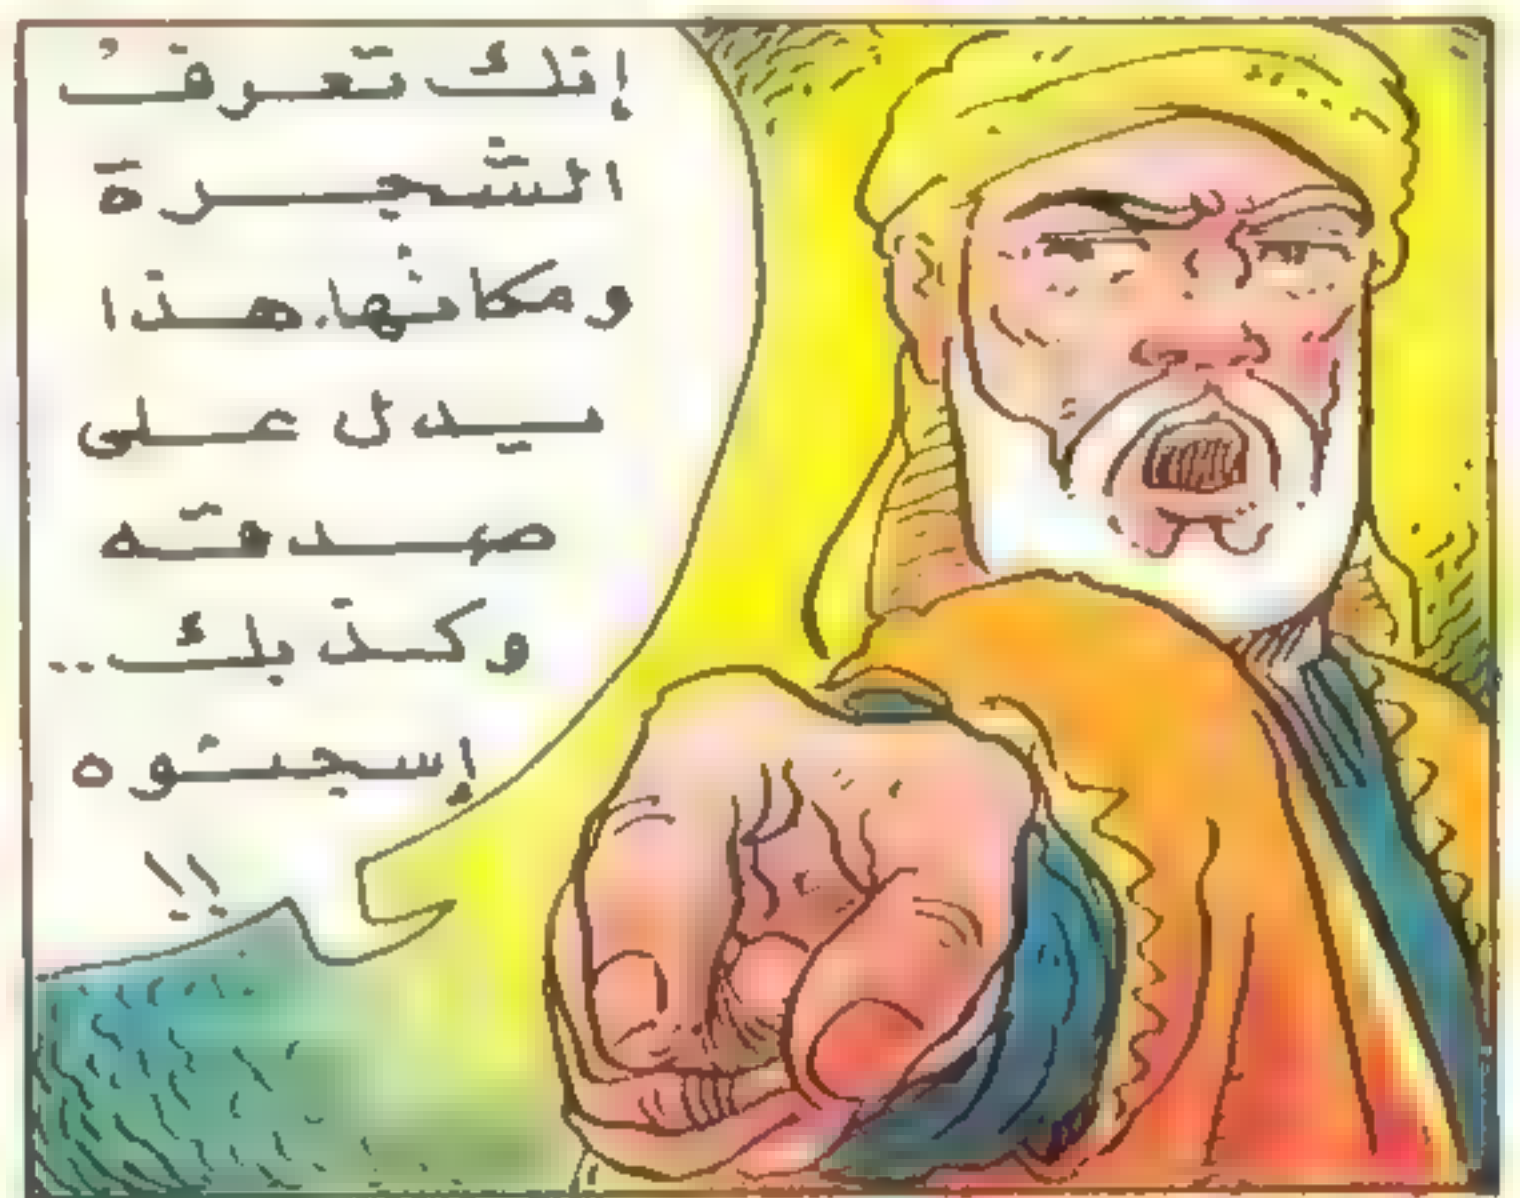 إنك تعرفُ
الشّجرة
ومكانُها، هذا
يدل على
صدقه
وكذبك..
إسجنُوه
!!